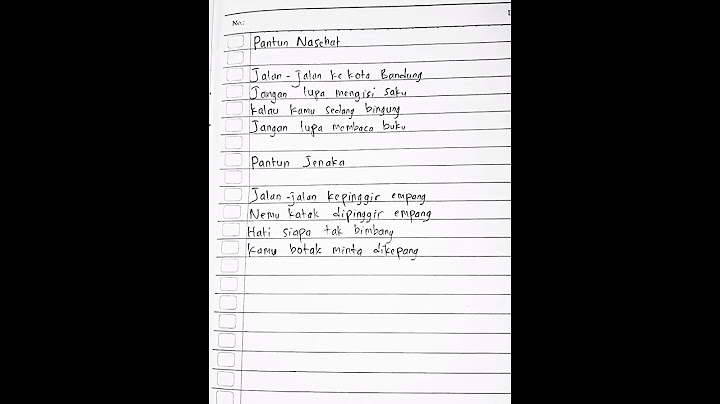 No:
Pantun Nasehat
Jalan - jalan ke kota Bandung
Jangan lupa mengisi saku
Kalau kamu sedang bingung
Jangan lupa membaca buku
Pantun Jenaka
Jalan-jalan kepinggir empang
Nemu katak dipinggir empang
Hati siapa tak bimbang
Kamu botak minta dikepang